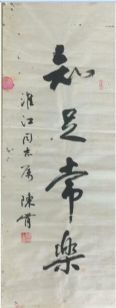 知足常樂
淮江同志属
陳雷